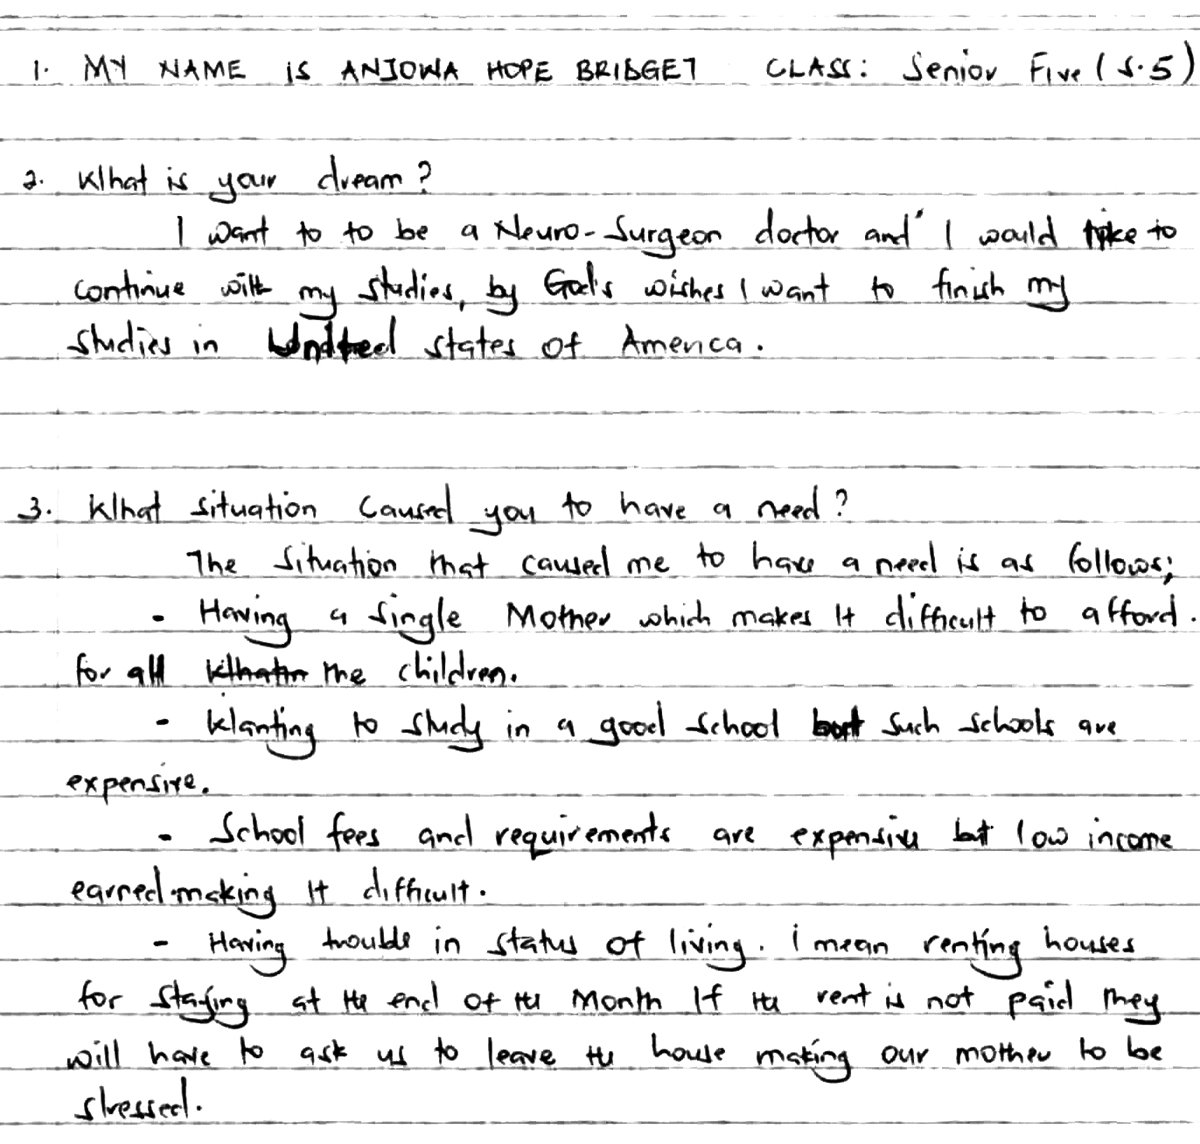 1. MY NAME is ANJOWA HOPE BRIDGET CLASS: Senior Five (S.5)
2. What is your dream?
I want to to be a Neuro-Surgeon doctor and I would like to
continue with my studies, by God's wishes I want to finish my
studies in United states of America.
3. What situation Caused you to have a need?
The Situation that caused me to have a need is as follows;
- Having a Single Mother which makes It difficult to afford.
for all the children.
- Wanting to Study in a good School but Such schools are
expensive.
- School fees and requirements are expensive but low income
earned making It difficult.
- Having trouble in status of living. i mean renting houses
for Staying at the end of the Month If the rent is not paid they
will have to ask us to leave the house making our mother to be
stressed.